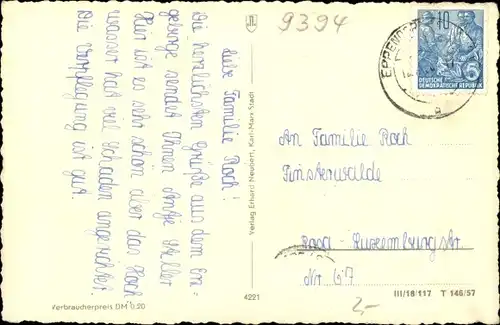 9394
Liebe Familie Roch!
Die herzlichsten Grüße aus dem Erz-
gebirge sendet Ihnen Antje
Hier ist es sehr schön aber das Hoch
wasser hat viel Schaden angerichtet.
Die Verpflegung ist gut.
Verbraucherpreis DM 0.20
Verlag Erhard Neubert, Karl-Marx-Stadt
4221
EPPENDORF
10
5
DEUTSCHE
DEMOKRATISCHE REPUBLIK
a
An Familie Roch
Finsterwalde
Rosa-Luxemburgstr.
Nr. 67
III/18/117 T 146/57
2,-